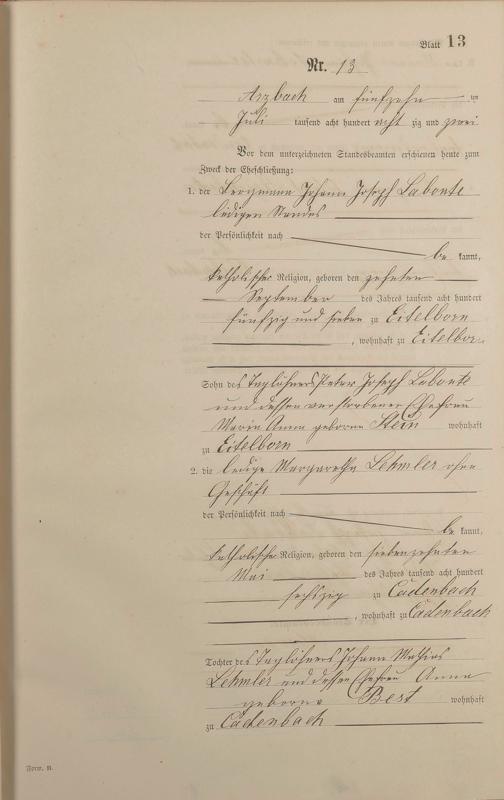 Blatt 13
Nr. 13
Arzbach am fünfzehn ten
Juli tausend acht hundert acht zig und zwei
Vor dem unterzeichneten Standesbeamten erschienen heute zum
Zweck der Eheschließung:
1. der Bergmann Johann Joseph Labonte
ledigen Standes
der Persönlichkeit nach
be kannt,
katholischer Religion, geboren den zehnten
September des Jahres tausend acht hundert
fünfzig und sieben zu Eitelborn
, wohnhaft zu Eitelborn
Sohn des Taglöhners Peter Joseph Labonte
und dessen verstorbener Ehefrau
Maria Anna geborne Stein wohnhaft
zu Eitelborn
2. die ledige Margaretha Lehmler ohne
Geschäft
der Persönlichkeit nach
be kannt,
katholischer Religion, geboren den siebenzehnten
Mai des Jahres tausend acht hundert
sechszig zu Cadenbach
, wohnhaft zu Cadenbach
Tochter des Taglöhners Johann Mathias
Lehmler und dessen Ehefrau Anna
geborne Best wohnhaft
zu Cadenbach
Form. B.